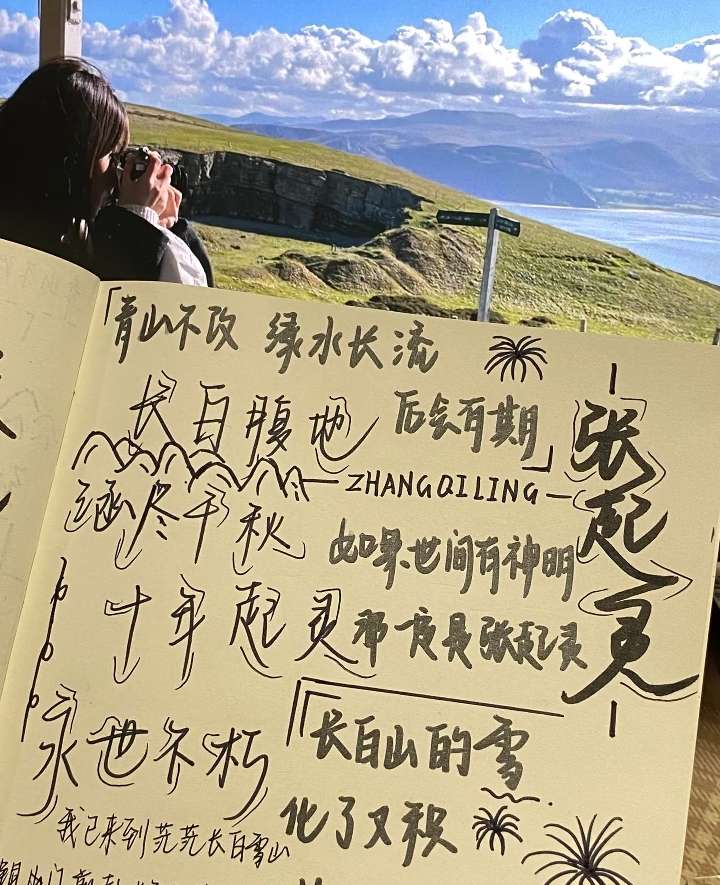 「青山不改 绿水长流
后会有期」
长白腹地
ZHANGQILING
张起灵
涵冬千秋
如果世间有神明
那一定是张起灵
十年起灵
永世不朽
「长白山的雪
化了又积
我已来到茫茫长白雪山